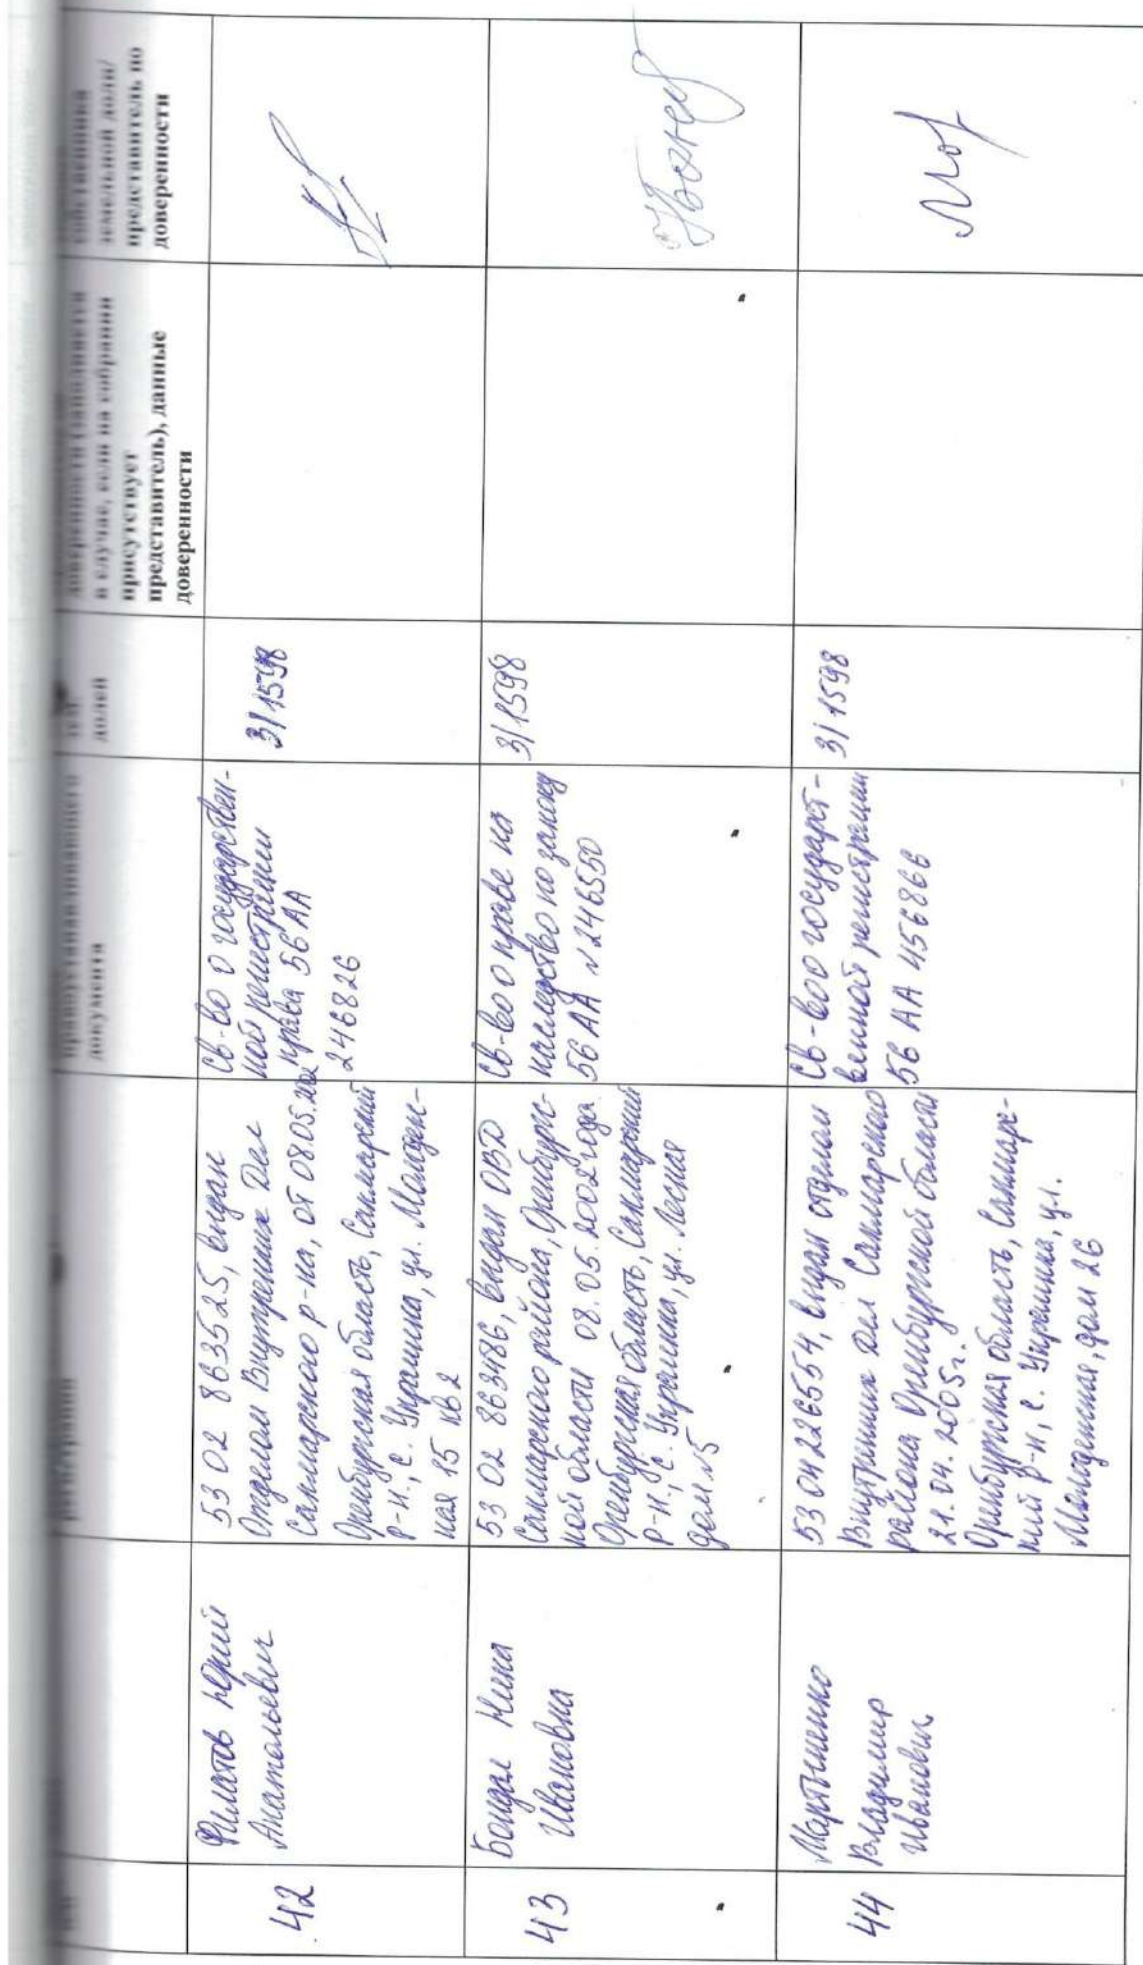 документа
долей
в случае, если на собрании
присутствует
представитель), данные
доверенности
земельной доли/
представитель по
доверенности
42
Филатов Юрий
Анатольевич
53 02 863525, выдан
Отделом Внутренних Дел
Сакмарского р-на, от 08.05.2002
Оренбургская область, Сакмарский
р-н., с. Украинка, ул. Молодеж-
ная 15 кв 2
Св-во о государствен-
ной регистрации
права 56 АА
246826
3/1598
43
Бондал Нина
Ивановна
53 02 863486, выдан ОВД
Сакмарского района, Оренбургс-
кой области 08.05.2002 года.
Оренбургская область, Сакмарский
р-н., с. Украинка, ул. Лесная
дом №5
Св-во о праве на
наследство по закону
56 АА №246550
3/1598
44
Мартыненко
Владимир
Иванович
53 04 226554, выдан отделом
Внутренних Дел Сакмарского
района Оренбургской области
21.04.2005г.
Оренбургская область, Сакмарс-
кий р-н, с. Украинка, ул.
Молодежная, дом 26
Св-во о государст-
венной регистрации
56 АА 456866
3/1598